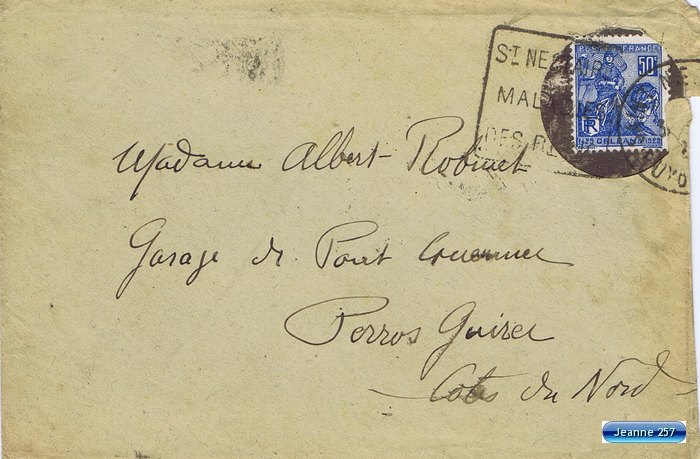 ST NECTAIRE
MALADIES
DES RE
POSTES FRANCE
50c
RF
1429 ORLEANS 1929
PUY D
Madame Albert Robinet
Garage de Pont Couennec
Perros Guirec
Cotes du Nord
Jeanne 257